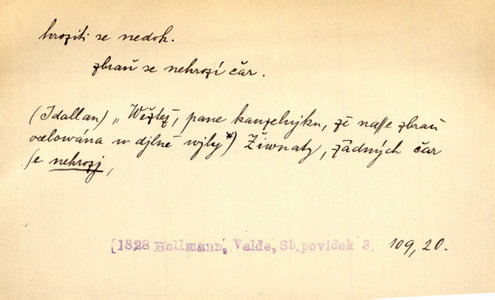 hroziti se nedok.
zbraň se nehrozí čár.
(Idallan) „Wěztež, pane kanzelnjku, žě nasse zbraň
ocelowána w djlně wjly*) Žiwnaty, žádných čár
se nehrozj,
[1828 Hollmann, Velde, Sb.povídek 3. 109,20.